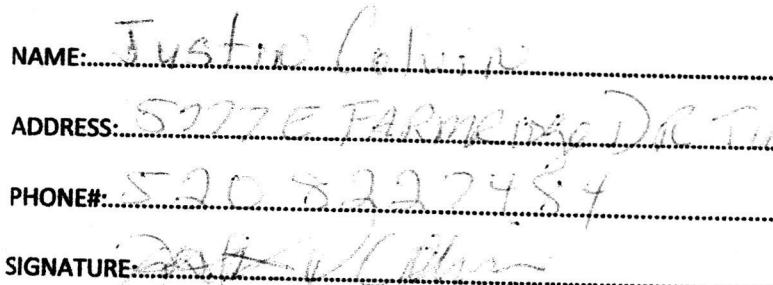 NAME: Justin Calvin
ADDRESS: 5777 E FARMRIDGE DR
PHONE#: 520 8227454
SIGNATURE: